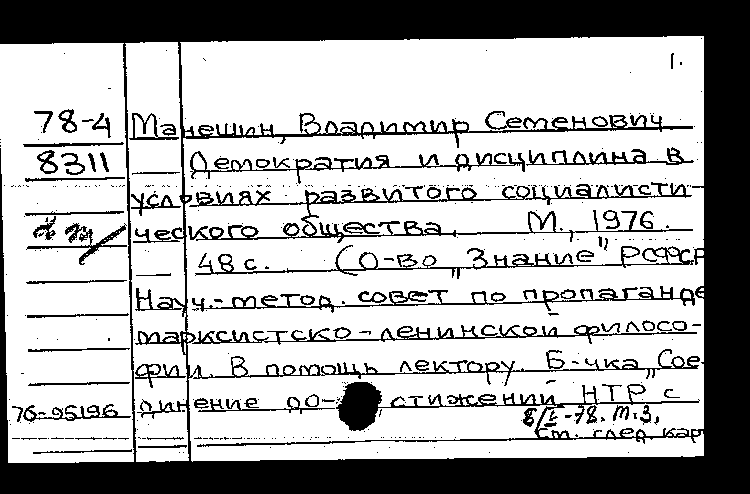 1.
78-4 Манешин, Владимир Семенович
8311 Демократия и дисциплина в
условиях развитого социалисти-
ческого общества. М., 1976.
48 с. (О-во „Знание" РСФСР
Науч.-метод. совет по пропаганде
марксистско-ленинской филосо-
фии. В помощь лектору. Б-чка „Сое-
76-95196 динение до-стижений НТР с
8/I-78. М.З.
См. след. кар